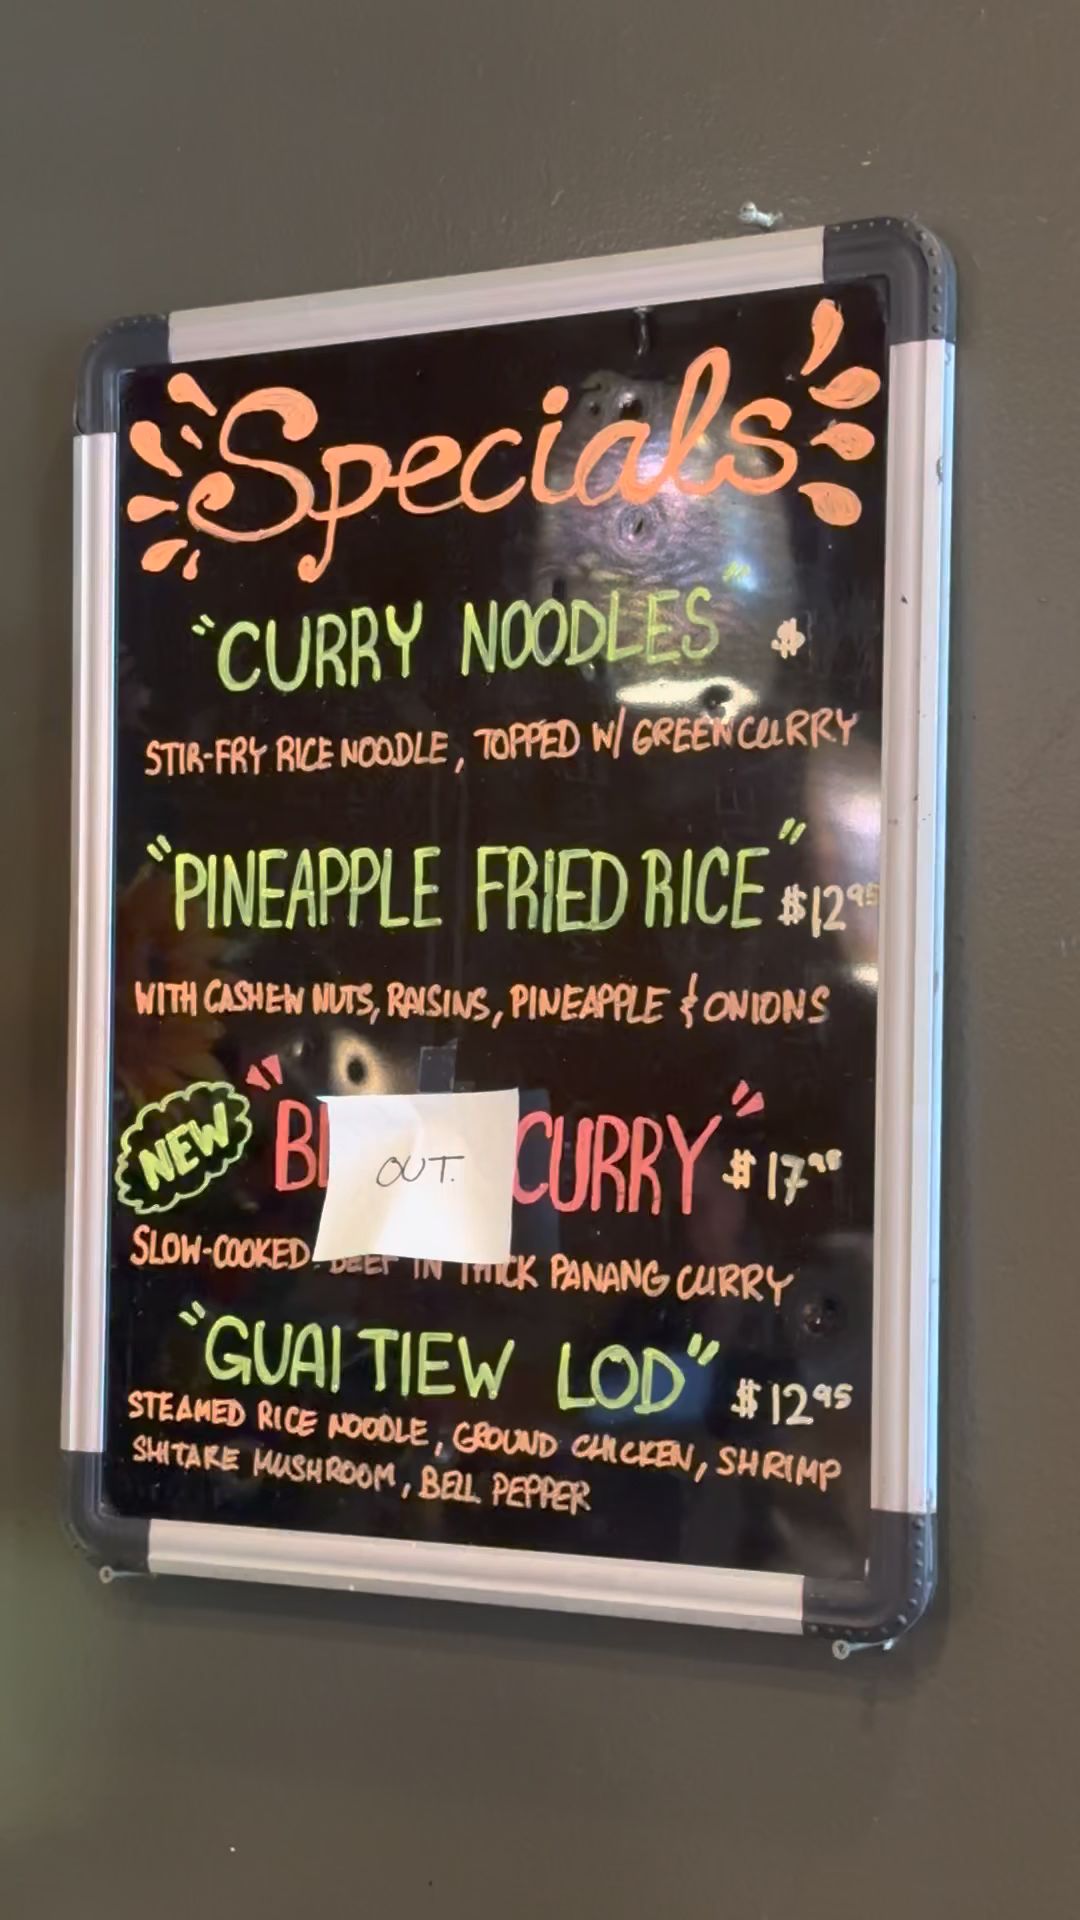 Specials
"CURRY NOODLES" $
STIR-FRY RICE NOODLE, TOPPED W/ GREEN CURRY
"PINEAPPLE FRIED RICE" $12.95
WITH CASHEW NUTS, RAISINS, PINEAPPLE & ONIONS
NEW "B CURRY" $17.95
OUT.
SLOW-COOKED BEEF IN THICK PANANG CURRY
"GUAI TIEW LOD" $12.95
STEAMED RICE NOODLE, GROUND CHICKEN, SHRIMP
SHITAKE MUSHROOM, BELL PEPPER